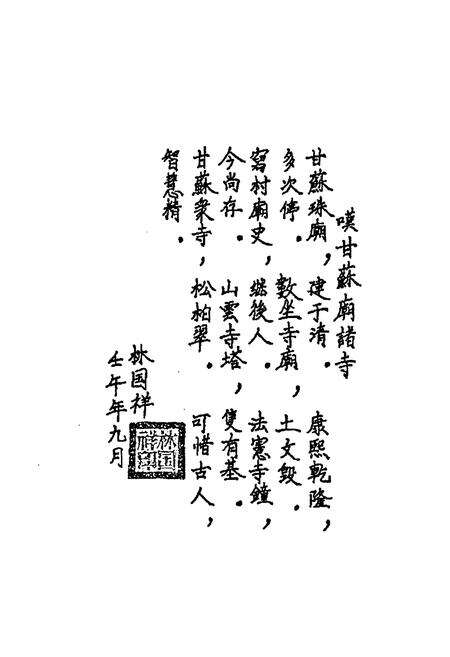 嘆甘蘇廟諸寺
甘蘇珠廟，建于清．康熙乾隆，
多次停．數坐寺廟，土文毀．
窩村廟史，繼後人．法憲寺鐘，
今尚存．山雲寺塔，隻有基．
甘蘇衆寺，松柏翠．可惜古人，
智慧精．
林国祥
壬午年九月
林国祥印